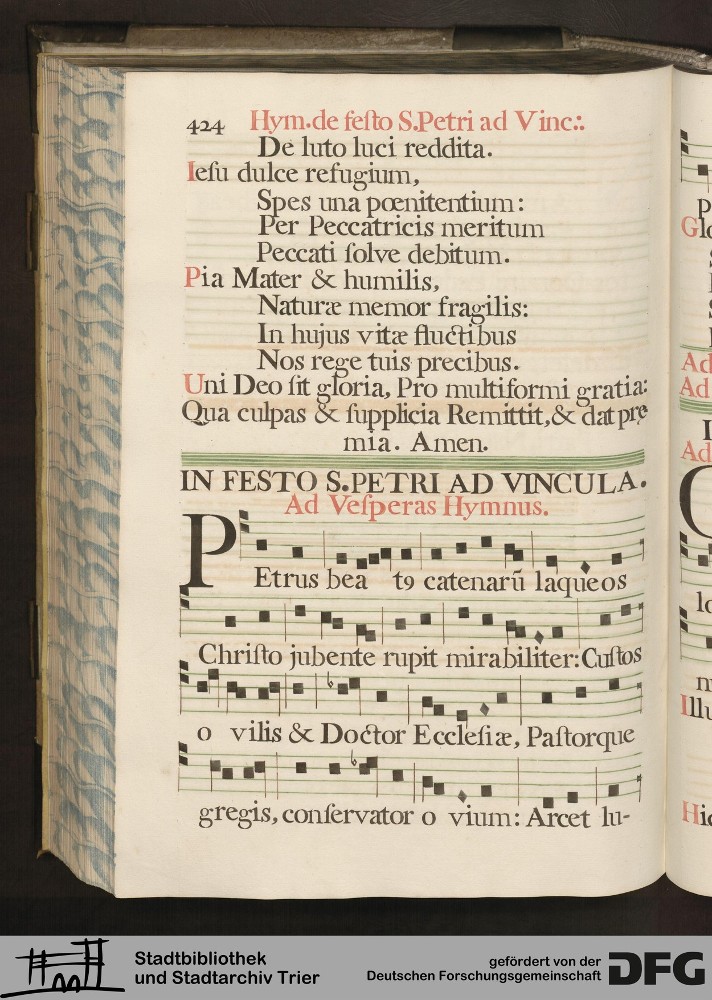 424 Hym. de feſto S. Petri ad Vinc:.
De luto luci reddita.
Ieſu dulce refugium,
Spes una pœnitentium:
Per Peccatricis meritum
Peccati ſolve debitum.
Pia Mater & humilis,
Naturæ memor fragilis:
In hujus vitæ fluctibus
Nos rege tuis precibus.
Uni Deo ſit gloria, Pro multiformi gratia:
Qua culpas & ſupplicia Remittit, & dat præ
mia. Amen.
IN FESTO S. PETRI AD VINCULA.
Ad Veſperas Hymnus.
PEtrus bea tꝯ catenarū laqueos
Chriſto jubente rupit mirabiliter: Cuſtos
o vilis & Doctor Eccleſiæ, Paſtorque
gregis, conſervator o vium: Arcet lu-
p
Glo
Ad
Ad
Ad
lo
Illu
Hic
Stadtbibliothek
und Stadtarchiv Trier
gefördert von der
Deutschen Forschungsgemeinschaft
DFG